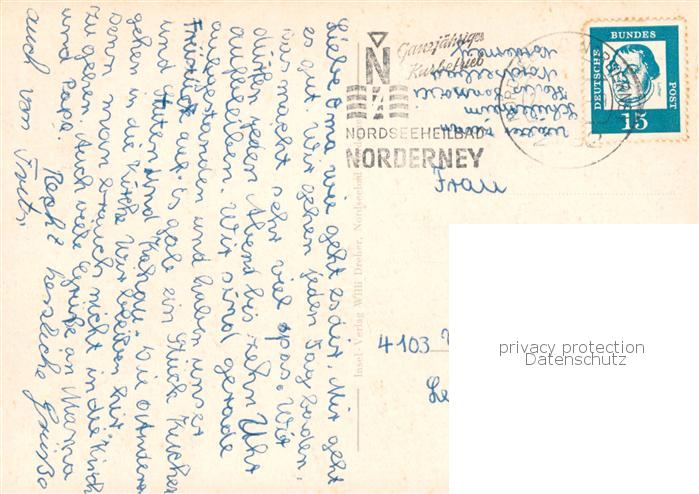 Liebe Oma wie geht es dir. Mir geht
es gut. Wir gehen jeden Tag baden.
das macht sehr viel spas. Wir
dürfen jeden Abend bis zehn Uhr
aufbleiben. Wir sind gerade
aufgestanden und haben unser
Frühstück aus. Es gab ein Stück Kuchen
und Stuten und Kakau. Die anderen
gehen in die Kirche Wir bleiben hir.
Denn man brauch nicht in die Kirch
zu gehen. Auch viele Grüße an Mama
und Papa. Recht herzliche Grüße
auch von Fritz.
Insel-Verlag Willi Dreher, Nordseebad
Ganzjähriger
Kurbetrieb
N
NORDSEEHEILBAD
NORDERNEY
DEUTSCHE BUNDES POST
15
Frau
4103
privacy protection
Datenschutz